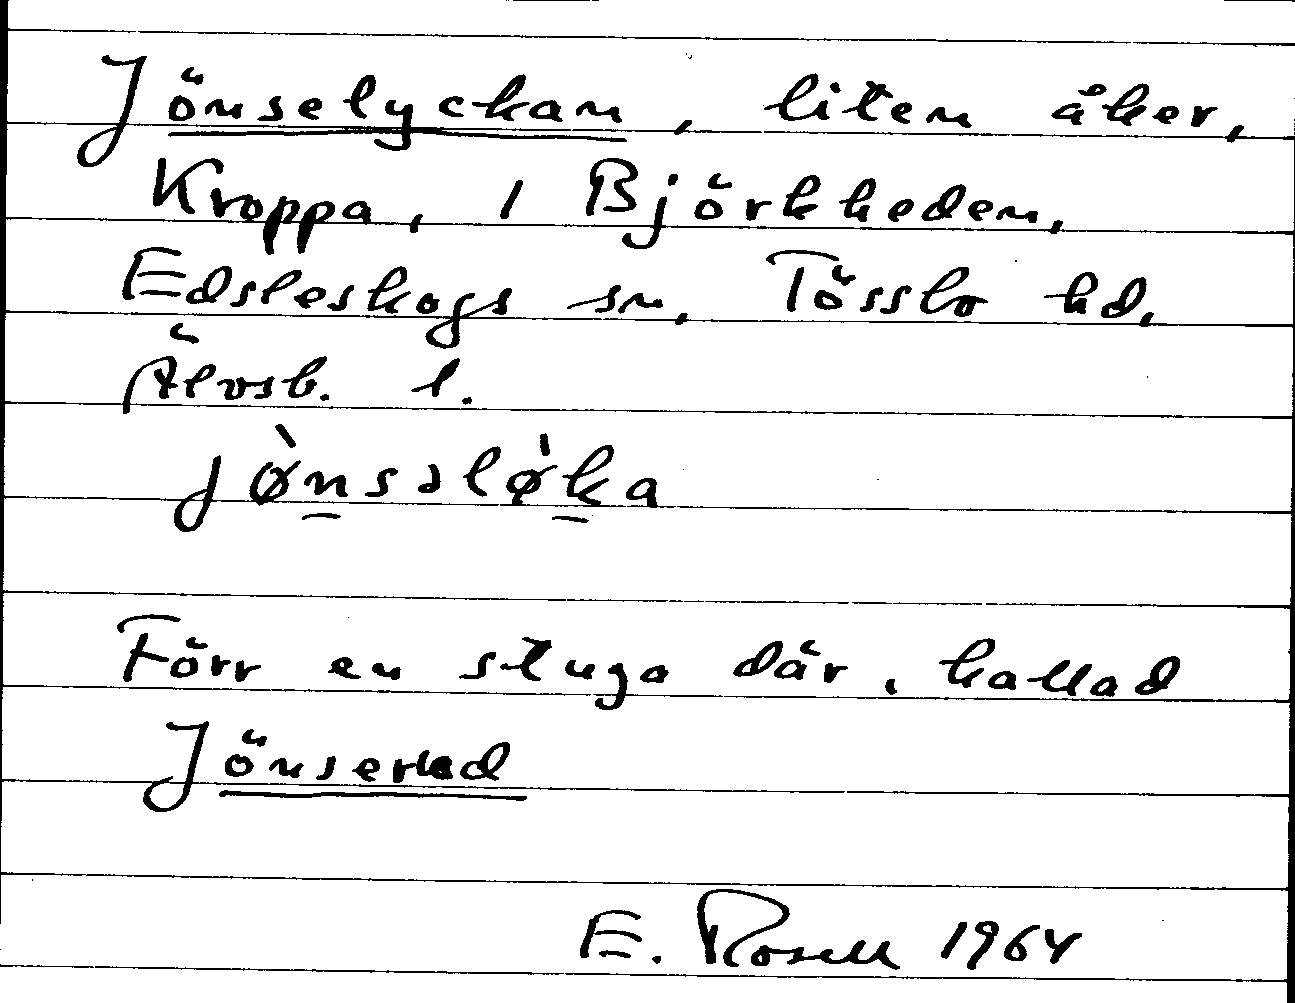 Jönselyckan, liten åker,
Kroppa, 1 Björkheden,
Edsleskogs sn, Tössbo hd,
Älvsb. l.
jø̀nsslø̍ka
Förr en stuga där, kallad
Jönserud
E. Rosell 1964